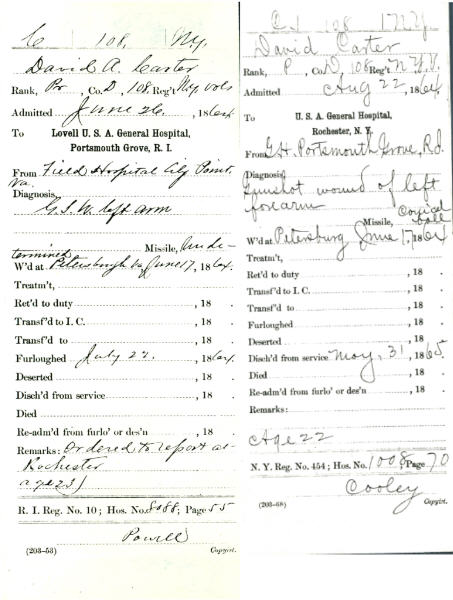 C 108, N.Y.
David A. Carter
Rank, Pr, Co. D, 108 Reg't N.Y. Vols
Admitted June 26, 1864
To Lovell U. S. A. General Hospital,
Portsmouth Grove, R. I.
From Field Hospital City Point.
Va.
Diagnosis,
G.S.W. left arm
Missile, Unde-
termined
W'd at Petersburgh Va June 17, 1864.
Treatm't,
Ret'd to duty , 18 .
Transf'd to I. C. , 18 .
Transf'd to , 18 .
Furloughed July 22, 1864
Deserted , 18 .
Disch'd from service , 18 .
Died , 18 .
Re-adm'd from furlo' or des'n , 18 .
Remarks: Ordered to report at
Rochester
age 23
R. I. Reg. No. 10; Hos. No. 8088; Page 55
Powell
(203–53) Copyist.
C 108 N.Y.
David Carter
Rank, P, Co. D 108 Reg't N.Y.V.
Admitted Aug 22, 1864
To U. S. A. General Hospital,
Rochester, N. Y.
From G.H. Portsmouth Grove, R.I.
Diagnosis,
Gunshot wound of left
forearm
Missile, Conical
ball
W'd at Petersburg June 17, 1864
Treatm't,
Ret'd to duty , 18 .
Transf'd to I. C. , 18 .
Transf'd to , 18 .
Furloughed , 18 .
Deserted , 18 .
Disch'd from service May, 31, 1865
Died , 18 .
Re-adm'd from furlo' or des'n , 18 .
Remarks:
Age 22
N. Y. Reg. No. 454; Hos. No. 1008 Page 70
Cooley
(203–68) Copyist.